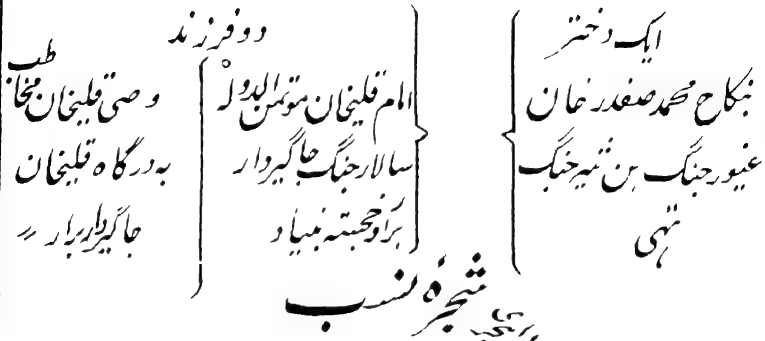 ایک دختر
نکاح محمد صفدر خان
غیور جنگ بن شمشیر جنگ
تہی
دو فرزند
امام قلیخان موتمن الدولہ
سالار جنگ جاگیردار
برار خجستہ بنیاد
وصی قلیخان مخاطب
بہ درگاہ قلیخان
جاگیردار برار
شجرۂ نسب